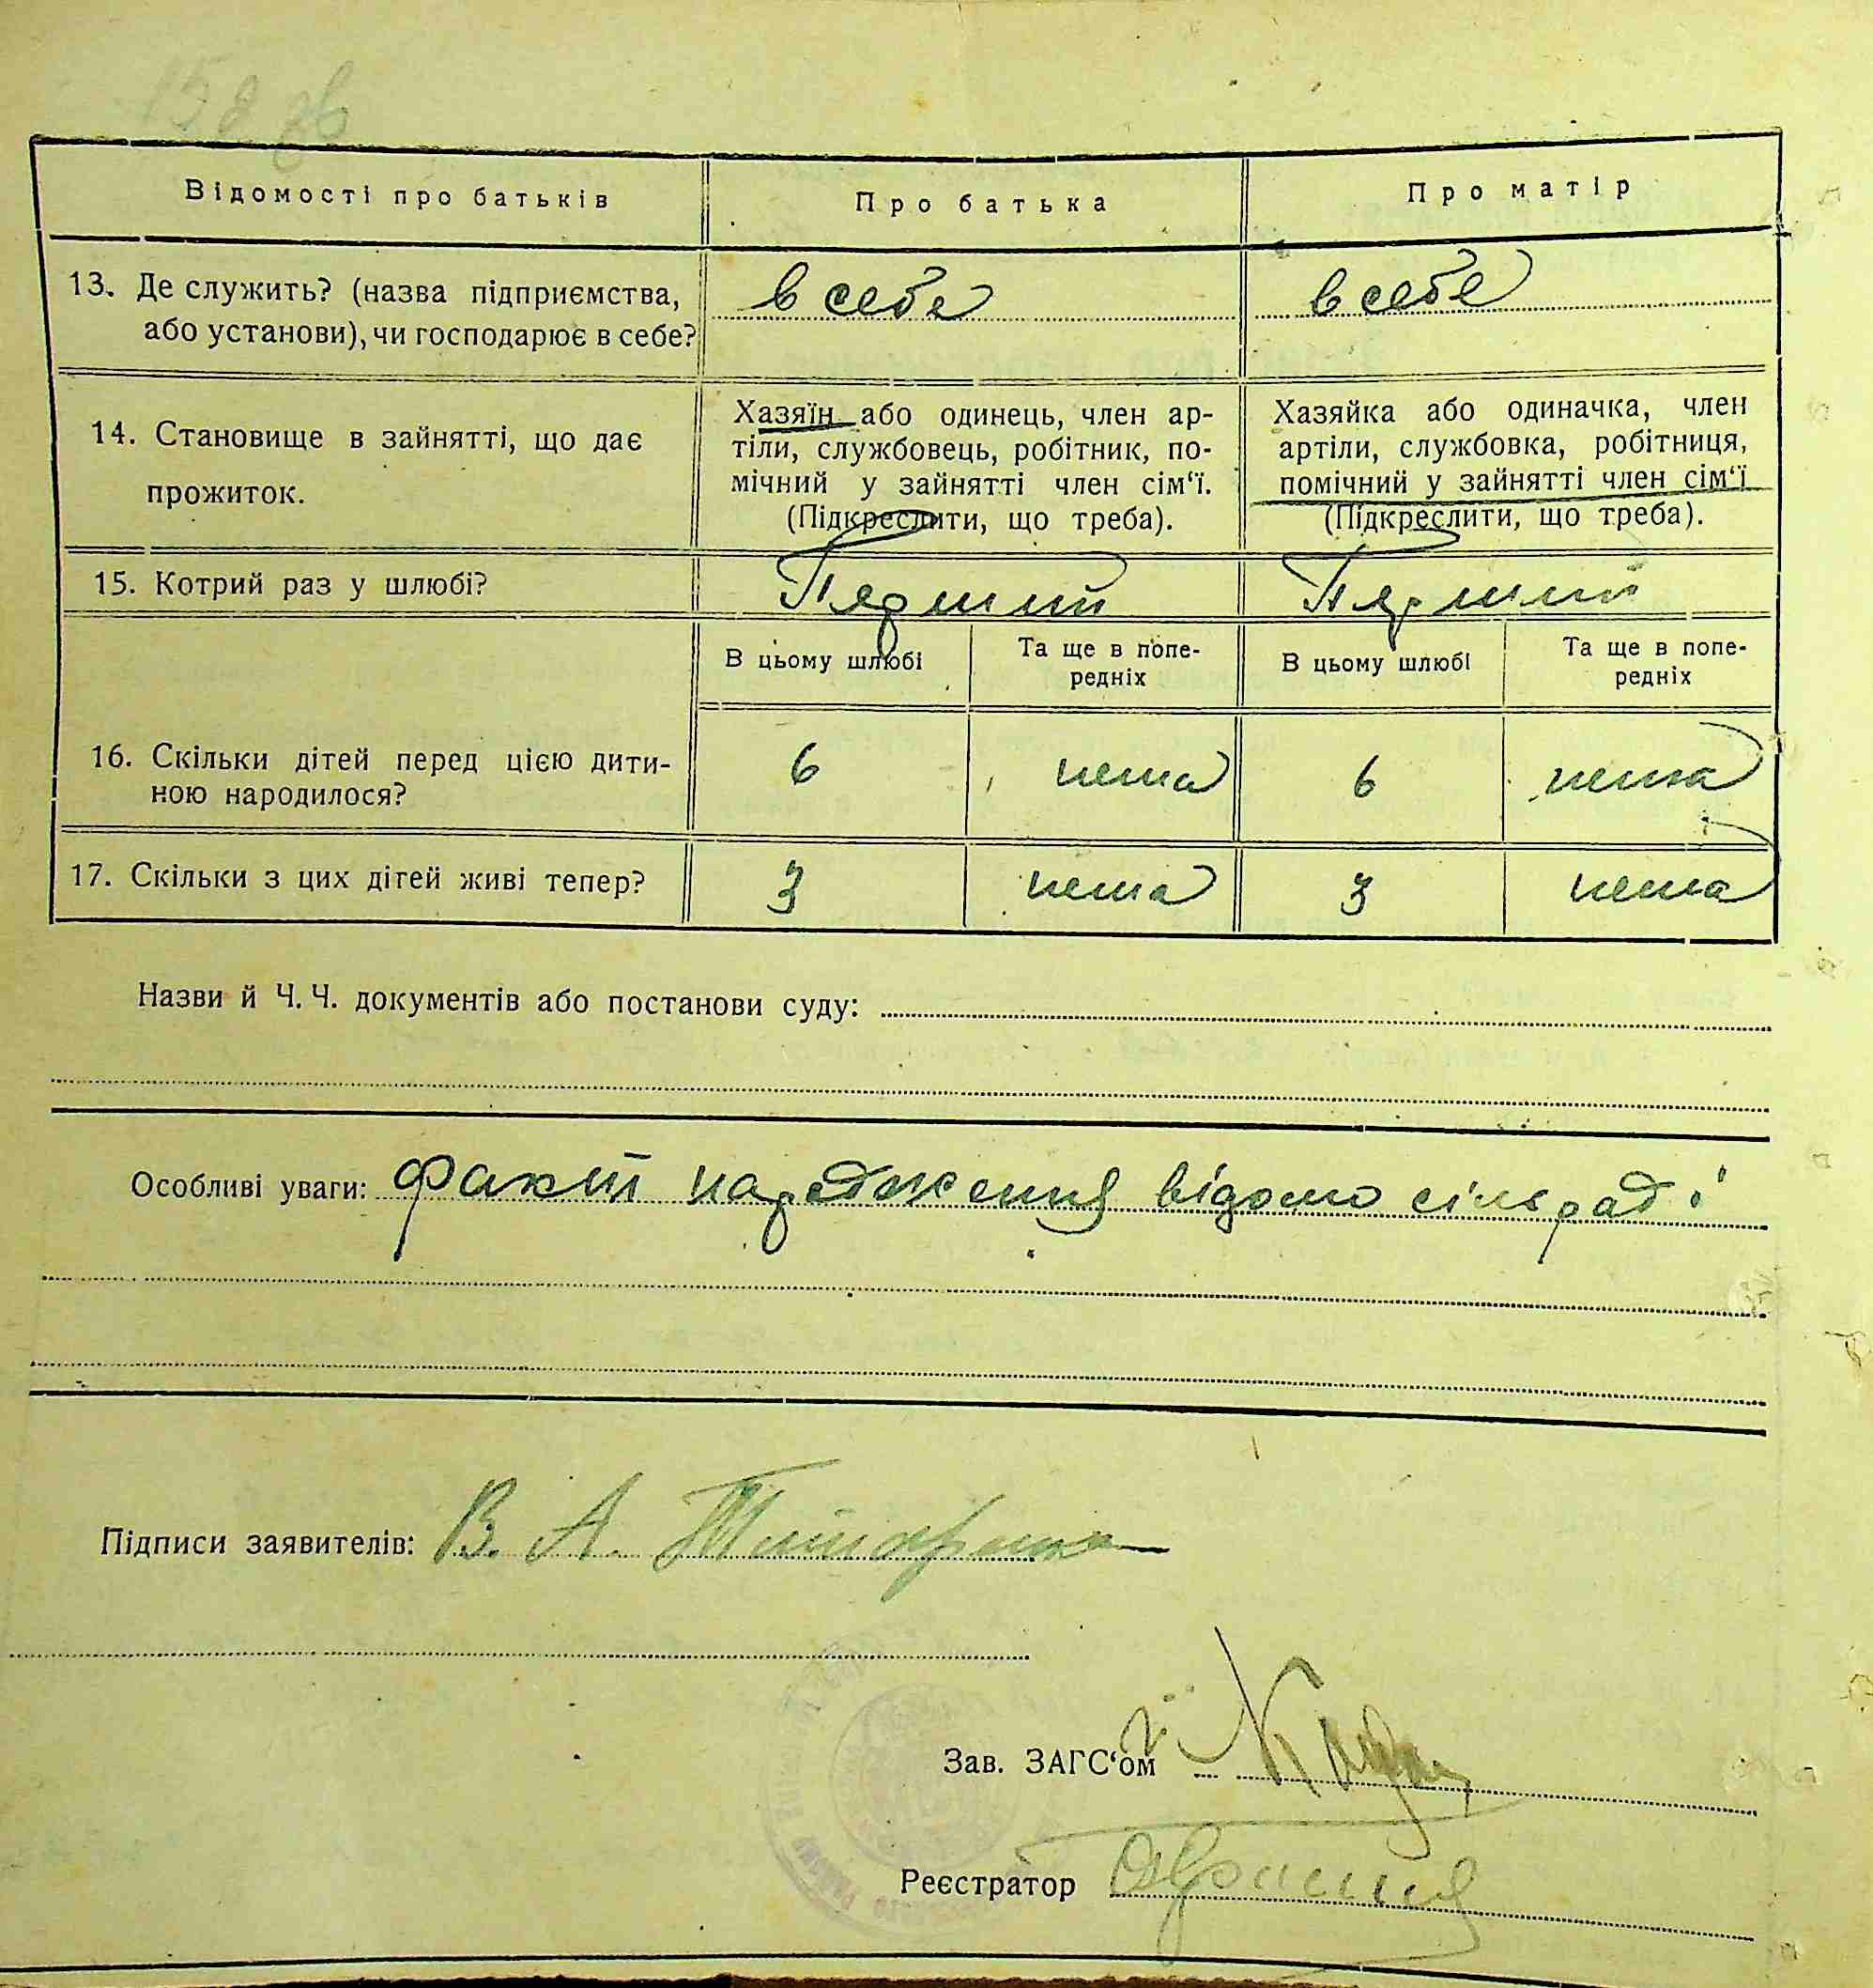 158 зв
Відомості про батьків
Про батька
Про матір
13. Де служить? (назва підприємства,
або установи), чи господарює в себе?
в себе
в себе
14. Становище в зайнятті, що дає
прожиток.
Хазяїн або одинець, член ар-
тіли, службовець, робітник, по-
мічний у зайнятті член сім‘ї.
(Підкреслити, що треба).
Хазяйка або одиначка, член
артіли, службовка, робітниця,
помічний у зайнятті член сім‘ї
(Підкреслити, що треба).
15. Котрий раз у шлюбі?
Перший
Перший
В цьому шлюбі
Та ще в попе-
редніх
В цьому шлюбі
Та ще в попе-
редніх
16. Скільки дітей перед цією дити-
ною народилося?
6
нема
6
нема
17. Скільки з цих дітей живі тепер?
3
нема
3
нема
Назви й Ч. Ч. документів або постанови суду:
Особливі уваги: Факт народження відомо сільраді
Підписи заявителів: В. А.
Зав. ЗАГС‘ом
Реєстратор